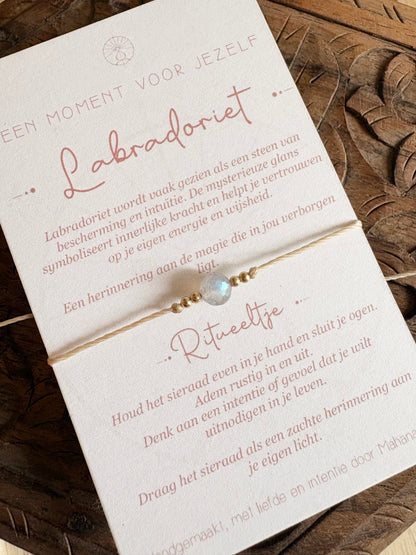 EEN MOMENT VOOR JEZELF
Labradoriet
Labradoriet wordt vaak gezien als een steen van
bescherming en intuïtie. De mysterieuze glans
symboliseert innerlijke kracht en helpt je vertrouwen
op je eigen energie en wijsheid.
Een herinnering aan de magie die in jou verborgen
ligt.
Ritueeltje
Houd het sieraad even in je hand en sluit je ogen.
Adem rustig in en uit.
Denk aan een intentie of gevoel dat je wilt
uitnodigen in je leven.
Draag het sieraad als een zachte herinnering aan
je eigen licht.
handgemaakt, met liefde en intentie door